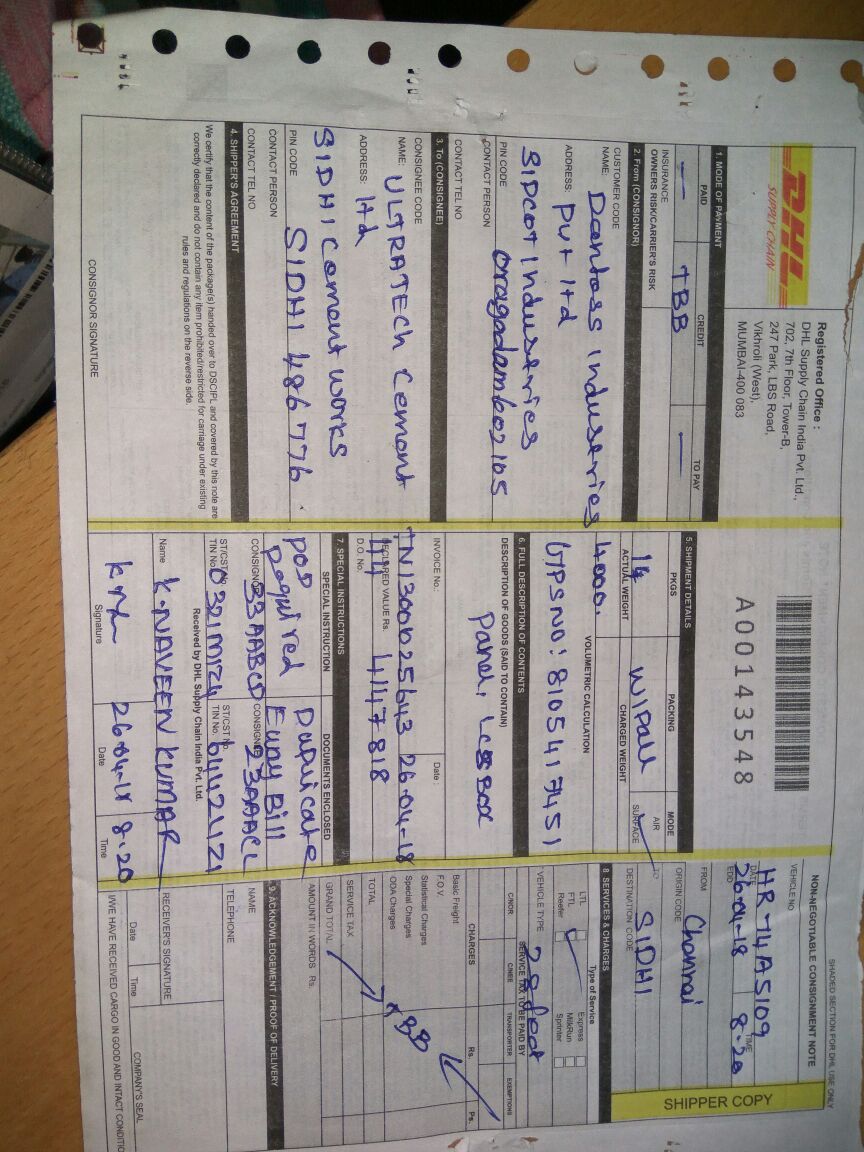 DHL
SUPPLY CHAIN
Registered Office :
DHL Supply Chain India Pvt. Ltd.,
702, 7th Floor, Tower-B,
247 Park, LBS Road,
Vikhroli (West),
MUMBAI-400 083
A00143548
SHADED SECTION FOR DHL USE ONLY
NON-NEGOTIABLE CONSIGNMENT NOTE
VEHICLE NO
HR-74A5109
DATE TIME
26-04-18 8-20
EDD
SHIPPER COPY
1. MODE OF PAYMENT
PAID CREDIT TO PAY
— TBB —
INSURANCE
OWNERS RISK/CARRIER'S RISK
2. From (CONSIGNOR)
CUSTOMER CODE
NAME: Danfoss Industries
ADDRESS: Pvt ltd
SIPCOT Industries
PIN CODE Oragadam 602105
CONTACT PERSON
CONTACT TEL NO
3. To (CONSIGNEE)
CONSIGNEE CODE
NAME: ULTRATECH Cement
ADDRESS: ltd
SIDHI Cement works
PIN CODE SIDHI 486776
CONTACT PERSON
CONTACT TEL NO
4. SHIPPER'S AGREEMENT
We certify that the content of the package(s) handed over to DSCIPL and covered by this note are
correctly declared and do not contain any item prohibited/restricted for carriage under existing
rules and regulations on the reverse side.
CONSIGNOR SIGNATURE
5. SHIPMENT DETAILS
PKGS PACKING MODE
14 AIR
SURFACE
ACTUAL WEIGHT CHARGED WEIGHT
4000.
VOLUMETRIC CALCULATION
GPS NO: 8105417451
6. FULL DESCRIPTION OF CONTENTS
DESCRIPTION OF GOODS (SAID TO CONTAIN)
Panel, LCS Box
INVOICE No. Date :
TN1300025643 26-04-18
DECLARED VALUE Rs. 4147818
D.O. No.
7. SPECIAL INSTRUCTIONS
SPECIAL INSTRUCTION DOCUMENTS ENCLOSED
POD Duplicate
Required Eway Bill
33AABCD 23AAACL
0321M1Z4 6442L1Z1
Received by DHL Supply Chain India Pvt. Ltd.
Name K.NAVEEN KUMAR
26-04-18 8-20
Signature Date Time
FROM
Chennai
ORIGIN CODE
TO
SIDHI
DESTINATION CODE
8. SERVICES & CHARGES
Type of Service
LTL Express
FTL MilkRun
Reefer Sprinter
VEHICLE TYPE 28 feet
SERVICE TAX TO BE PAID BY
C/NOR C/NEE TRANSPORTER EXEMPTIONS
CHARGES Rs. Ps.
Basic Freight
F.O.V.
Statistical Charges
Special Charges
ODA Charges
TOTAL
SERVICE TAX
GRAND TOTAL
TBB
AMOUNT IN WORDS Rs.
9. ACKNOWLEDGEMENT / PROOF OF DELIVERY
NAME
TELEPHONE
RECEIVER'S SIGNATURE
COMPANY'S SEAL
Date Time
I/WE HAVE RECEIVED CARGO IN GOOD AND INTACT